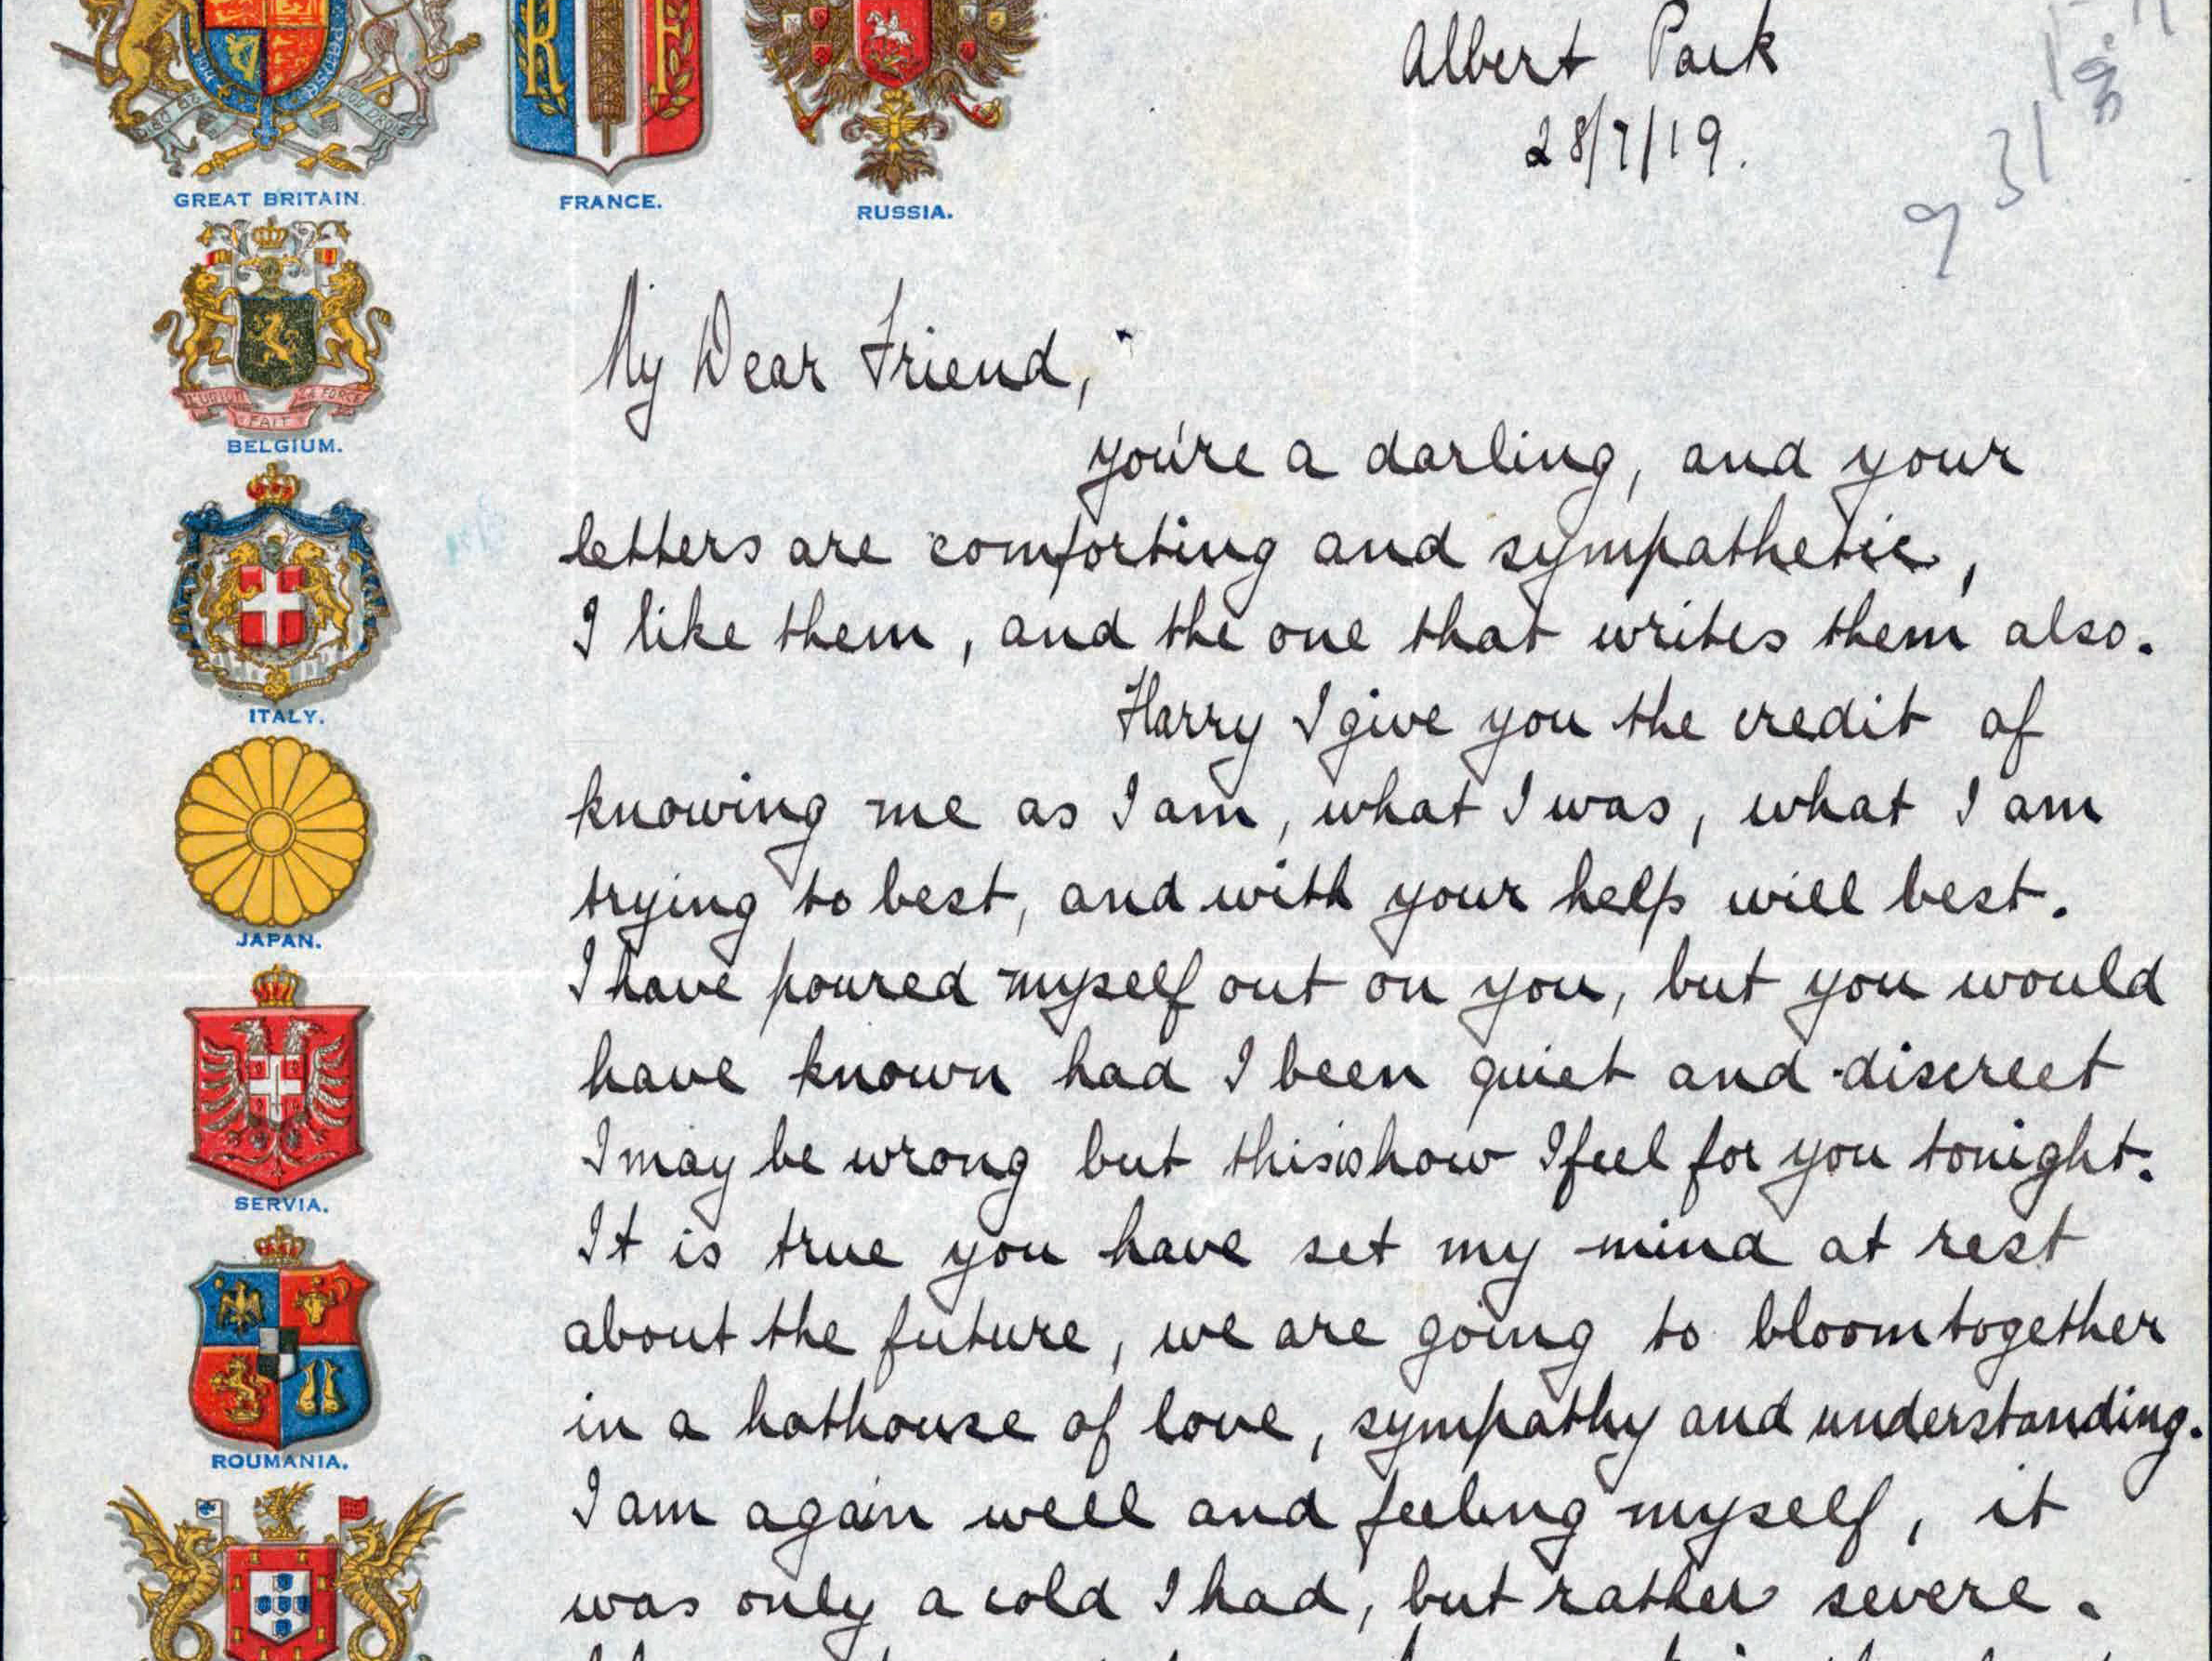 Albert Park
28/7/19.
GREAT BRITAIN.
FRANCE.
RUSSIA.
R F
My Dear Friend,
you're a darling, and your
letters are comforting and sympathetic,
I like them, and the one that writes them also.
Harry I give you the credit of
knowing me as I am, what I was, what I am
trying to best, and with your help will best.
I have poured myself out on you, but you would
have known had I been quiet and discreet
I may be wrong but this is how I feel for you tonight.
It is true you have set my mind at rest
about the future, we are going to bloom together
in a hothouse of love, sympathy and understanding.
I am again well and feeling myself, it
was only a cold I had, but rather severe.
BELGIUM.
L'UNION FAIT LA FORCE
ITALY.
JAPAN.
SERVIA.
ROUMANIA.